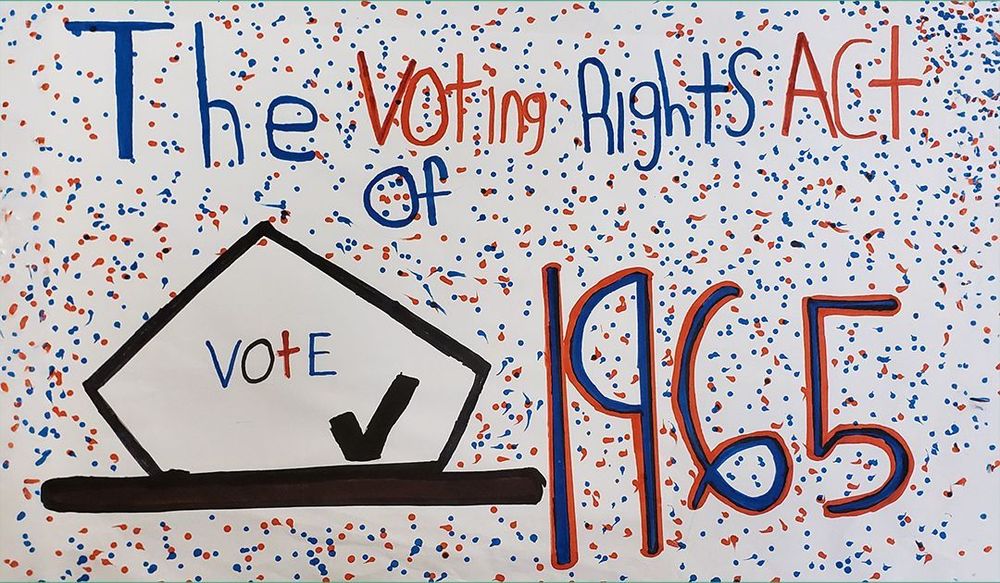 The Voting Rights Act
of
1965
VOtE